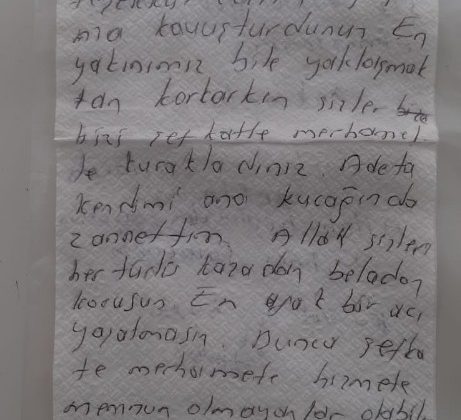 mıa kavuşturdunuz En
yakınımız bile yaklaşmak
tan korkarkın sizler
bizi şefkatle merhamet
le kucakladınız. Adeta
kendimi ana kucağında
zannettim. Allah sizleri
her türlü kazadan beladan
korusun. En ufak bir acı
yaşatmasın. Bunca şefka
te merhamete hizmete
memnun olmayanlar olabil